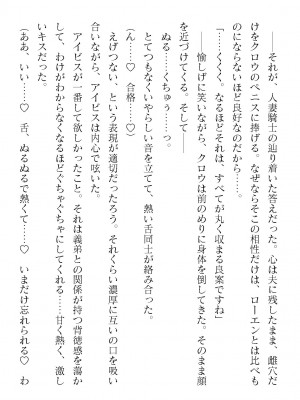 それが、人妻騎士の辿り着いた答えだった。心は夫に残したまま、雌穴だ
けをクロウのペニスに捧げる。なぜならそこの相性だけは、ローエンとは比べも
のにならないほど良好なのだから……。
「……くくく。なるほどなるほど。それは、すべてが丸く収まる良案ですね」
――愉しげに笑いながら、クロウは前のめりに身体を倒してきた。そのまま顔
を近づけてくる。そして――
ぬる……くちゅぅ……っ。
とてつもなくいやらしい音を立てて、熱い舌同士が絡み合った。
（ん……♡　合格……♡）
えげつない、という表現が適切だったろう。それくらい濃厚に互いの口を吸い
合いながら、アイビスは内心で呟いた。
アイビスが一番して欲しかったこと。それは義弟との関係が持つ背徳感を薄
め、わけがわからなくなるほどぐちゃぐちゃにしてくれる――甘く熱く、激し
いキスだった。
（ああ、いい……♡　舌、ぬるぬるで熱くて……♡　いまだけ忘れられる♡　わ